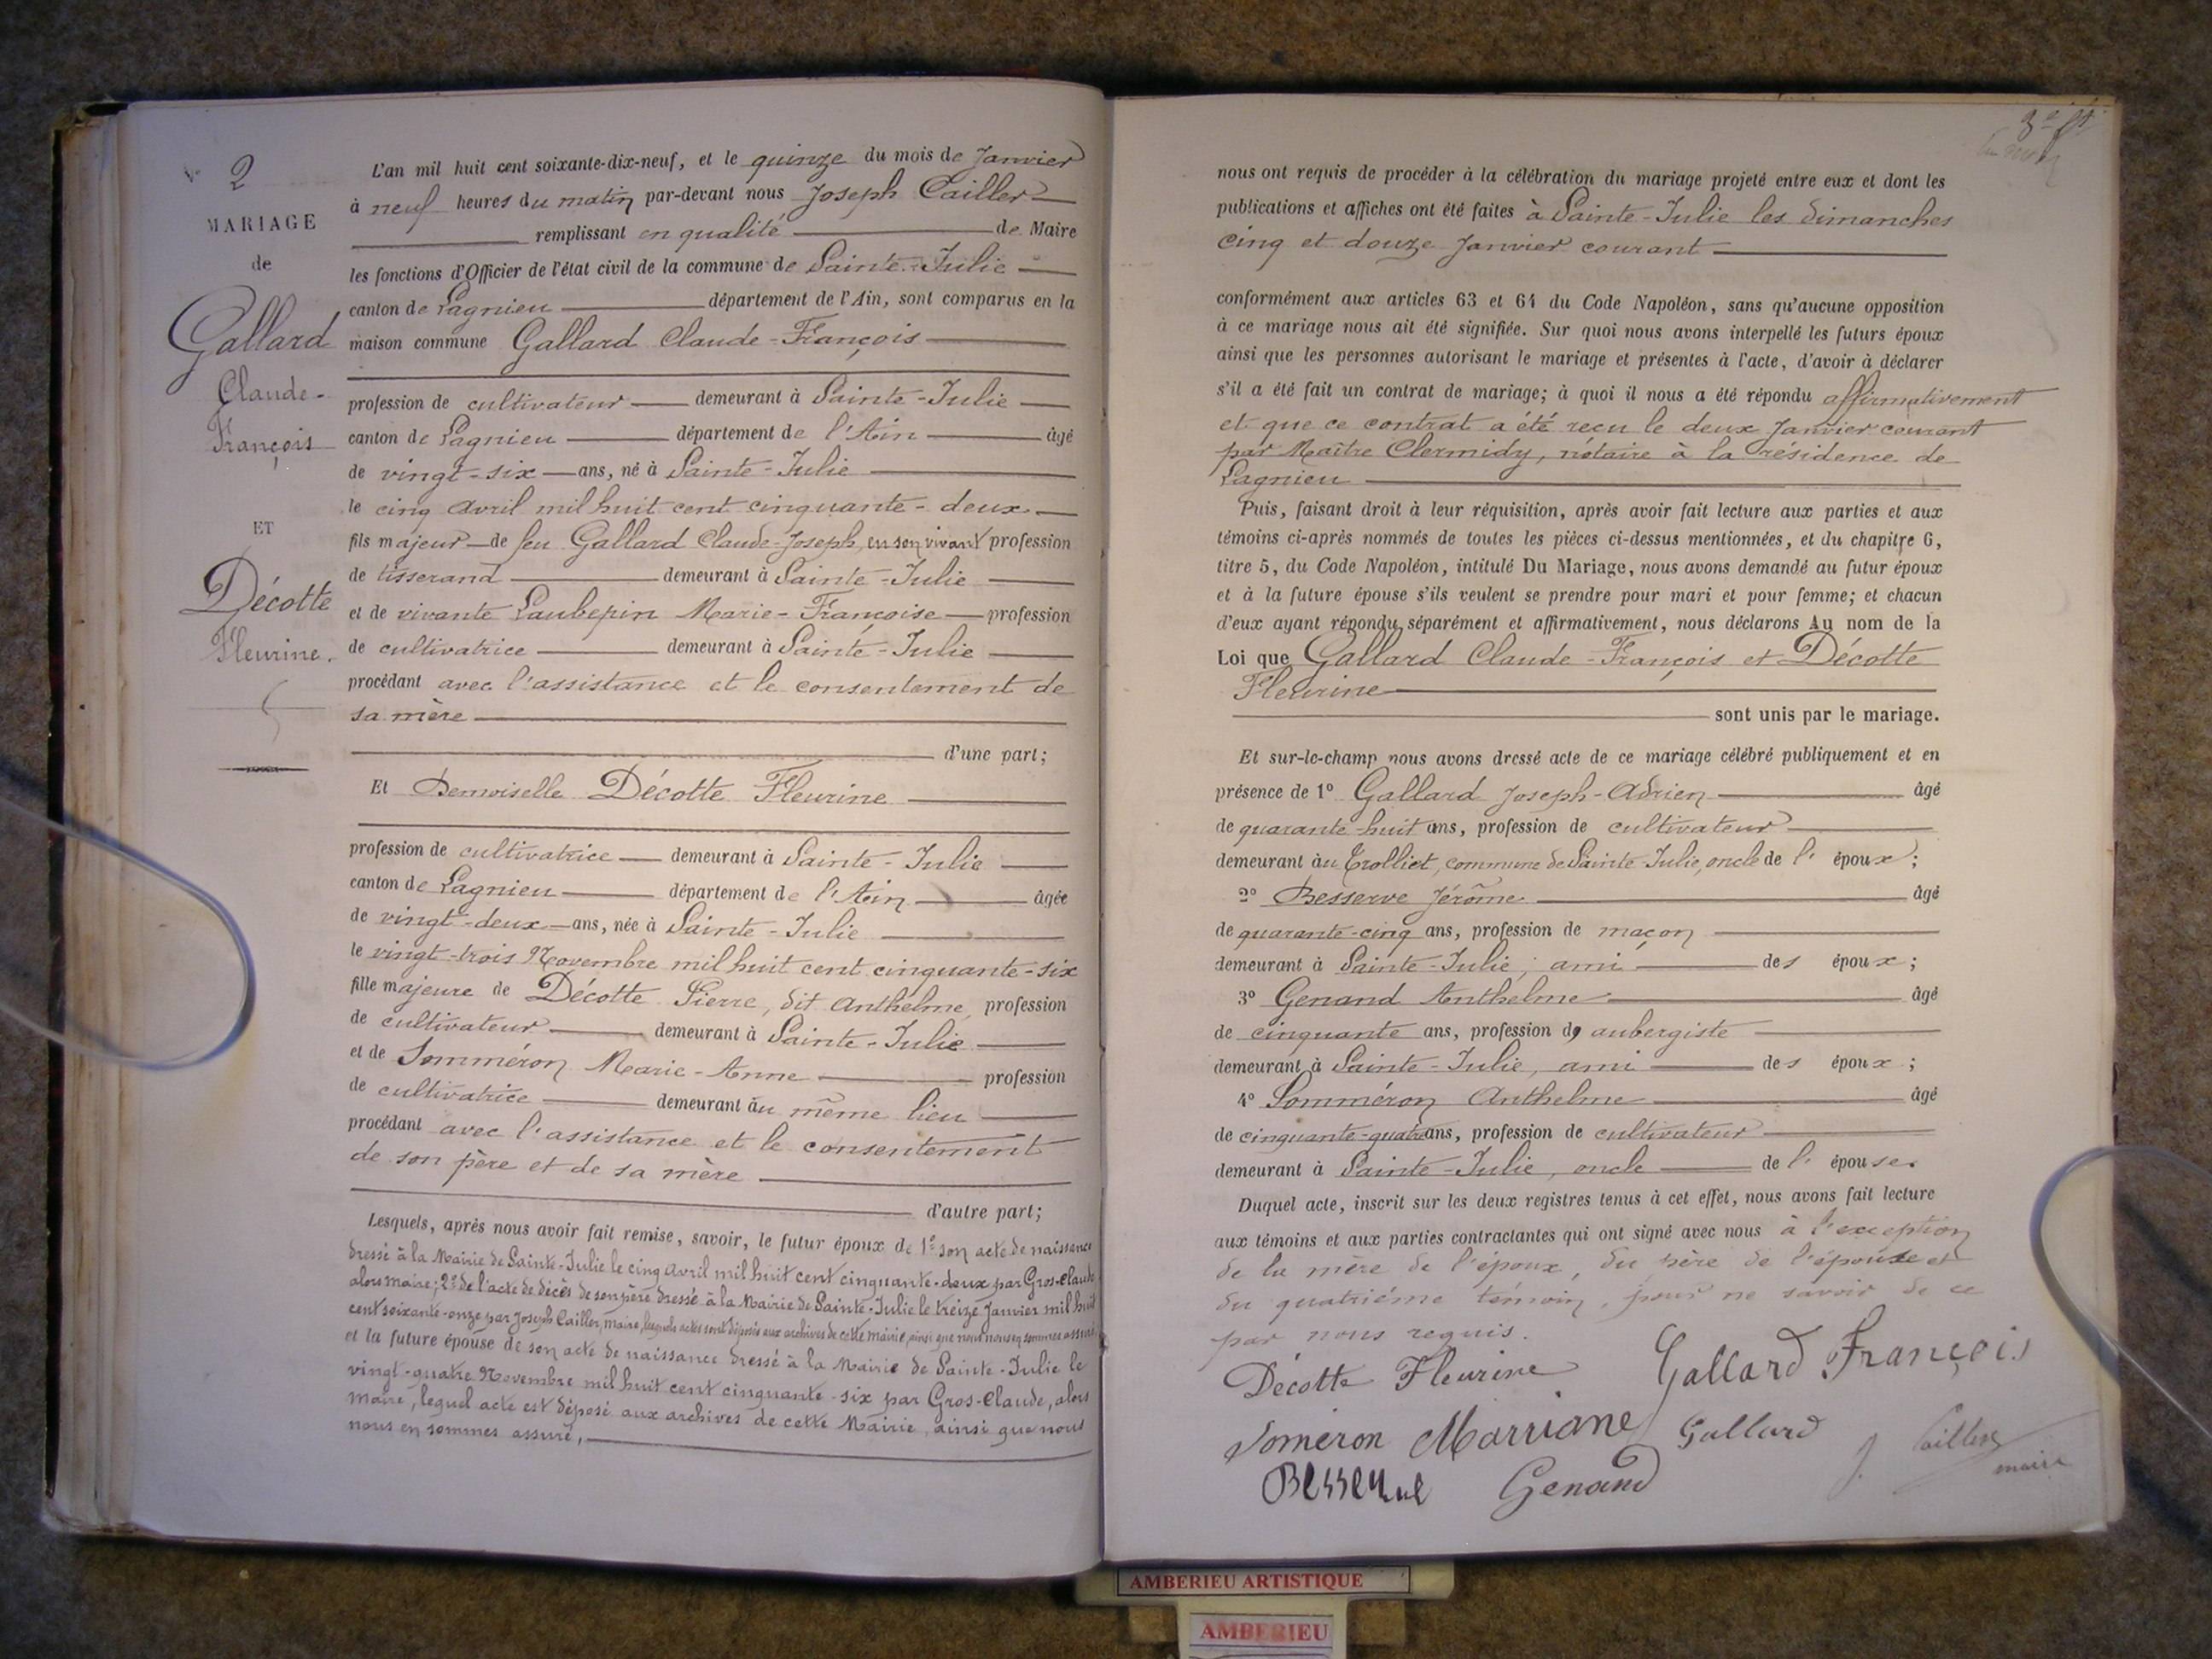 N° 2
MARIAGE
de
Gallard
Claude-
François
ET
Décotte
Fleurine.
L'an mil huit cent soixante-dix-neuf, et le quinze du mois de Janvier
à neuf heures du matin par-devant nous Joseph Cailler
remplissant en qualité de Maire
les fonctions d'Officier de l'état civil de la commune de Sainte-Julie
canton de Lagnieu département de l'Ain, sont comparus en la
maison commune Gallard Claude-François
profession de cultivateur demeurant à Sainte-Julie
canton de Lagnieu département de l'Ain âgé
de vingt-six ans, né à Sainte-Julie
le cinq avril mil huit cent cinquante-deux
fils majeur de feu Gallard Claude-Joseph, en son vivant profession
de tisserand demeurant à Sainte-Julie
et de vivante Laubepin Marie-Françoise profession
de cultivatrice demeurant à Sainte-Julie
procédant avec l'assistance et le consentement de
sa mère
d'une part;
Et Demoiselle Décotte Fleurine
profession de cultivatrice demeurant à Sainte-Julie
canton de Lagnieu département de l'Ain âgée
de vingt-deux ans, née à Sainte-Julie
le vingt-trois Novembre mil huit cent cinquante-six
fille majeure de Décotte Pierre, dit Anthelme, profession
de cultivateur demeurant à Sainte-Julie
et de Somméron Marie-Anne profession
de cultivatrice demeurant au même lieu
procédant avec l'assistance et le consentement
de son père et de sa mère
d'autre part;
Lesquels, après nous avoir fait remise, savoir, le futur époux de 1° son acte de naissance
dressé à la Mairie de Sainte-Julie le cinq avril mil huit cent cinquante-deux par Gros-Claude,
alors maire; 2° de l'acte de décès de son père dressé à la Mairie de Sainte-Julie le treize Janvier mil huit
cent soixante-onze par Joseph Cailler, maire, lesquels actes sont déposés aux archives de cette mairie, ainsi que nous nous en sommes assuré
et la future épouse de son acte de naissance dressé à la Mairie de Sainte-Julie le
vingt-quatre Novembre mil huit cent cinquante-six par Gros-Claude, alors
maire, lequel acte est déposé aux archives de cette Mairie, ainsi que nous
nous en sommes assuré,
nous ont requis de procéder à la célébration du mariage projeté entre eux et dont les
publications et affiches ont été faites à Sainte-Julie les dimanches
cinq et douze Janvier courant
conformément aux articles 63 et 64 du Code Napoléon, sans qu'aucune opposition
à ce mariage nous ait été signifiée. Sur quoi nous avons interpellé les futurs époux
ainsi que les personnes autorisant le mariage et présentes à l'acte, d'avoir à déclarer
s'il a été fait un contrat de mariage; à quoi il nous a été répondu affirmativement
et que ce contrat a été reçu le deux Janvier courant
par Maître Clermidy, notaire à la résidence de
Lagnieu
Puis, faisant droit à leur réquisition, après avoir fait lecture aux parties et aux
témoins ci-après nommés de toutes les pièces ci-dessus mentionnées, et du chapitre 6,
titre 5, du Code Napoléon, intitulé Du Mariage, nous avons demandé au futur époux
et à la future épouse s'ils veulent se prendre pour mari et pour femme; et chacun
d'eux ayant répondu séparément et affirmativement, nous déclarons Au nom de la
Loi que Gallard Claude-François et Décotte
Fleurine
sont unis par le mariage.
Et sur-le-champ nous avons dressé acte de ce mariage célébré publiquement et en
présence de 1° Gallard Joseph-Adrien âgé
de quarante-huit ans, profession de cultivateur
demeurant au Trolliet, commune de Sainte-Julie, oncle de l'époux;
2° Besserve Jérôme âgé
de quarante-cinq ans, profession de maçon
demeurant à Sainte-Julie, ami des époux;
3° Genand Anthelme âgé
de cinquante ans, profession de aubergiste
demeurant à Sainte-Julie, ami des époux;
4° Somméron Anthelme âgé
de cinquante-quatre ans, profession de cultivateur
demeurant à Sainte-Julie, oncle de l'épouse.
Duquel acte, inscrit sur les deux registres tenus à cet effet, nous avons fait lecture
aux témoins et aux parties contractantes qui ont signé avec nous à l'exception
de la mère de l'époux, du père de l'épouse et
du quatrième témoin, pour ne savoir de ce
par nous requis.
Décotte Fleurine Gallard François
Someron Marriane Gallard J. Cailler
maire
Besserve Genand
AMBERIEU ARTISTIQUE
AMBERIEU